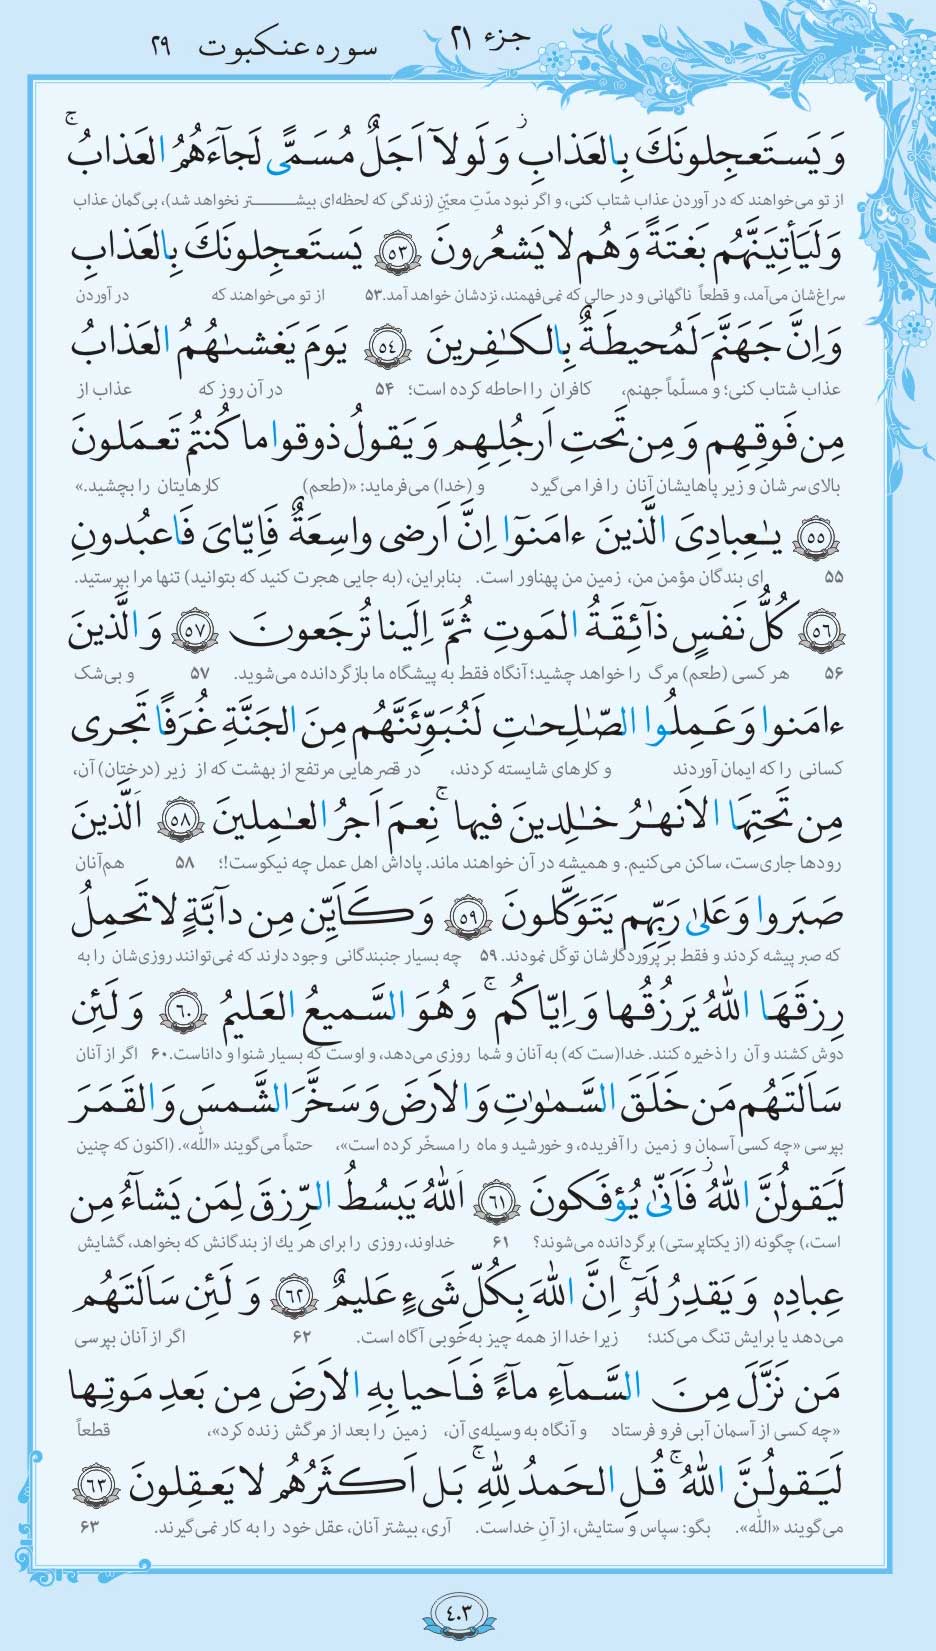 جزء ۲۱
سوره عنکبوت ۲۹
وَ يَستَعجِلونَكَ بِالعَذابِ ۚ وَ لَولآ اَجَلٌ مُسَمًّى لَجآءَهُمُ العَذابُ ۚ
از تو می‌خواهند که در آوردن عذاب شتاب کنی، و اگر نبود مدّتِ معیّنِ (زندگی که لحظه‌ای بیشتر نخواهد شد)، بی‌گمان عذاب
وَ لَيَأتِيَنَّهُم بَغتَةً وَ هُم لا يَشعُرونَ ﴿٥٣﴾ يَستَعجِلونَكَ بِالعَذابِ
سراغ‌شان می‌آمد، و قطعاً ناگهانی و در حالی که نمی‌فهمند، نزدشان خواهد آمد. ۵۳ از تو می‌خواهند که در آوردن
وَ اِنَّ جَهَنَّمَ لَمُحيطَةٌ بِالكٰفِرينَ ﴿٥٤﴾ يَومَ يَغشىٰهُمُ العَذابُ
عذاب شتاب کنی؛ و مسلّماً جهنم، کافران را احاطه کرده است؛ ۵۴ در آن روز که عذاب از
مِن فَوقِهِم وَ مِن تَحتِ اَرجُلِهِم وَ يَقولُ ذوقوا ما كُنتُم تَعمَلونَ
بالای سرشان و زیر پاهایشان آنان را فرا می‌گیرد و (خدا) می‌فرماید: «(طعم) کارهایتان را بچشید.»
﴿٥٥﴾ يٰعِبادِىَ الَّذينَ ءامَنوٓا اِنَّ اَرضى واسِعَةٌ فَاِيّاىَ فَاعبُدونِ
۵۵ ای بندگان مؤمن من، زمین من پهناور است. بنابراین، (به جایی هجرت کنید که بتوانید) تنها مرا بپرستید.
﴿٥٦﴾ كُلُّ نَفسٍ ذآئِقَةُ المَوتِ ثُمَّ اِلَينا تُرجَعونَ ﴿٥٧﴾ وَ الَّذينَ
۵۶ هر کسی (طعم) مرگ را خواهد چشید؛ آنگاه فقط به پیشگاه ما بازگردانده می‌شوید. ۵۷ و بی‌شک
ءامَنوا وَ عَمِلُوا الصّٰلِحٰتِ لَنُبَوِّئَنَّهُم مِنَ الجَنَّةِ غُرَفًا تَجرى
کسانی را که ایمان آوردند و کارهای شایسته کردند، در قصرهایی مرتفع از بهشت که از زیر (درختان) آن،
مِن تَحتِهَا الاَنهٰرُ خٰلِدينَ فيها ۚ نِعمَ اَجرُ العٰمِلينَ ﴿٥٨﴾ اَلَّذينَ
رودها جاری‌ست، ساکن می‌کنیم. و همیشه در آن خواهند ماند. پاداش اهل عمل چه نیکوست!؛ ۵۸ هم‌آنان
صَبَروا وَ عَلىٰ رَبِّهِم يَتَوَكَّلونَ ﴿٥٩﴾ وَ كَاَيِّن مِن دآبَّةٍ لا تَحمِلُ
که صبر پیشه کردند و فقط بر پروردگارشان توکّل نمودند. ۵۹ چه بسیار جنبندگانی وجود دارند که نمی‌توانند روزی‌شان را به
رِزقَهَا اللّٰهُ يَرزُقُها وَ اِيّاكُم ۚ وَ هُوَ السَّميعُ العَليمُ ﴿٦٠﴾ وَ لَئِن
دوش کشند و آن را ذخیره کنند. خدا(ست که) به آنان و شما روزی می‌دهد، و اوست که بسیار شنوا و داناست. ۶۰ اگر از آنان
سَاَلتَهُم مَن خَلَقَ السَّمٰوٰتِ وَ الاَرضَ وَ سَخَّرَ الشَّمسَ وَ القَمَرَ
بپرسی «چه کسی آسمان و زمین را آفریده، و خورشید و ماه را مسخّر کرده است»، حتماً می‌گویند «اللّٰه». (اکنون که چنین
لَيَقولُنَّ اللّٰهُ ۖ فَاَنّىٰ يُؤفَكونَ ﴿٦١﴾ اَللّٰهُ يَبسُطُ الرِّزقَ لِمَن يَشآءُ مِن
است،) چگونه (از یکتاپرستی) برگردانده می‌شوند؟ ۶۱ خداوند، روزی را برای هر یك از بندگانش که بخواهد، گشایش
عِبادِهٖ وَ يَقدِرُ لَهٗٓ ۚ اِنَّ اللّٰهَ بِكُلِّ شَىءٍ عَليمٌ ﴿٦٢﴾ وَ لَئِن سَاَلتَهُم
می‌دهد یا برایش تنگ می‌کند؛ زیرا خدا از همه چیز به‌خوبی آگاه است. ۶۲ اگر از آنان بپرسی
مَن نَزَّلَ مِنَ السَّمآءِ مآءً فَاَحيا بِهِ الاَرضَ مِن بَعدِ مَوتِها
«چه کسی از آسمان آبی فرو فرستاد و آنگاه به وسیله‌ی آن، زمین را بعد از مرگش زنده کرد»، قطعاً
لَيَقولُنَّ اللّٰهُ ۚ قُلِ الحَمدُ لِلّٰهِ ۚ بَل اَكثَرُهُم لا يَعقِلونَ ﴿٦٣﴾
می‌گویند «اللّٰه». بگو: سپاس و ستایش، از آنِ خداست. آری، بیشتر آنان، عقل خود را به کار نمی‌گیرند. ۶۳
٤٠٣